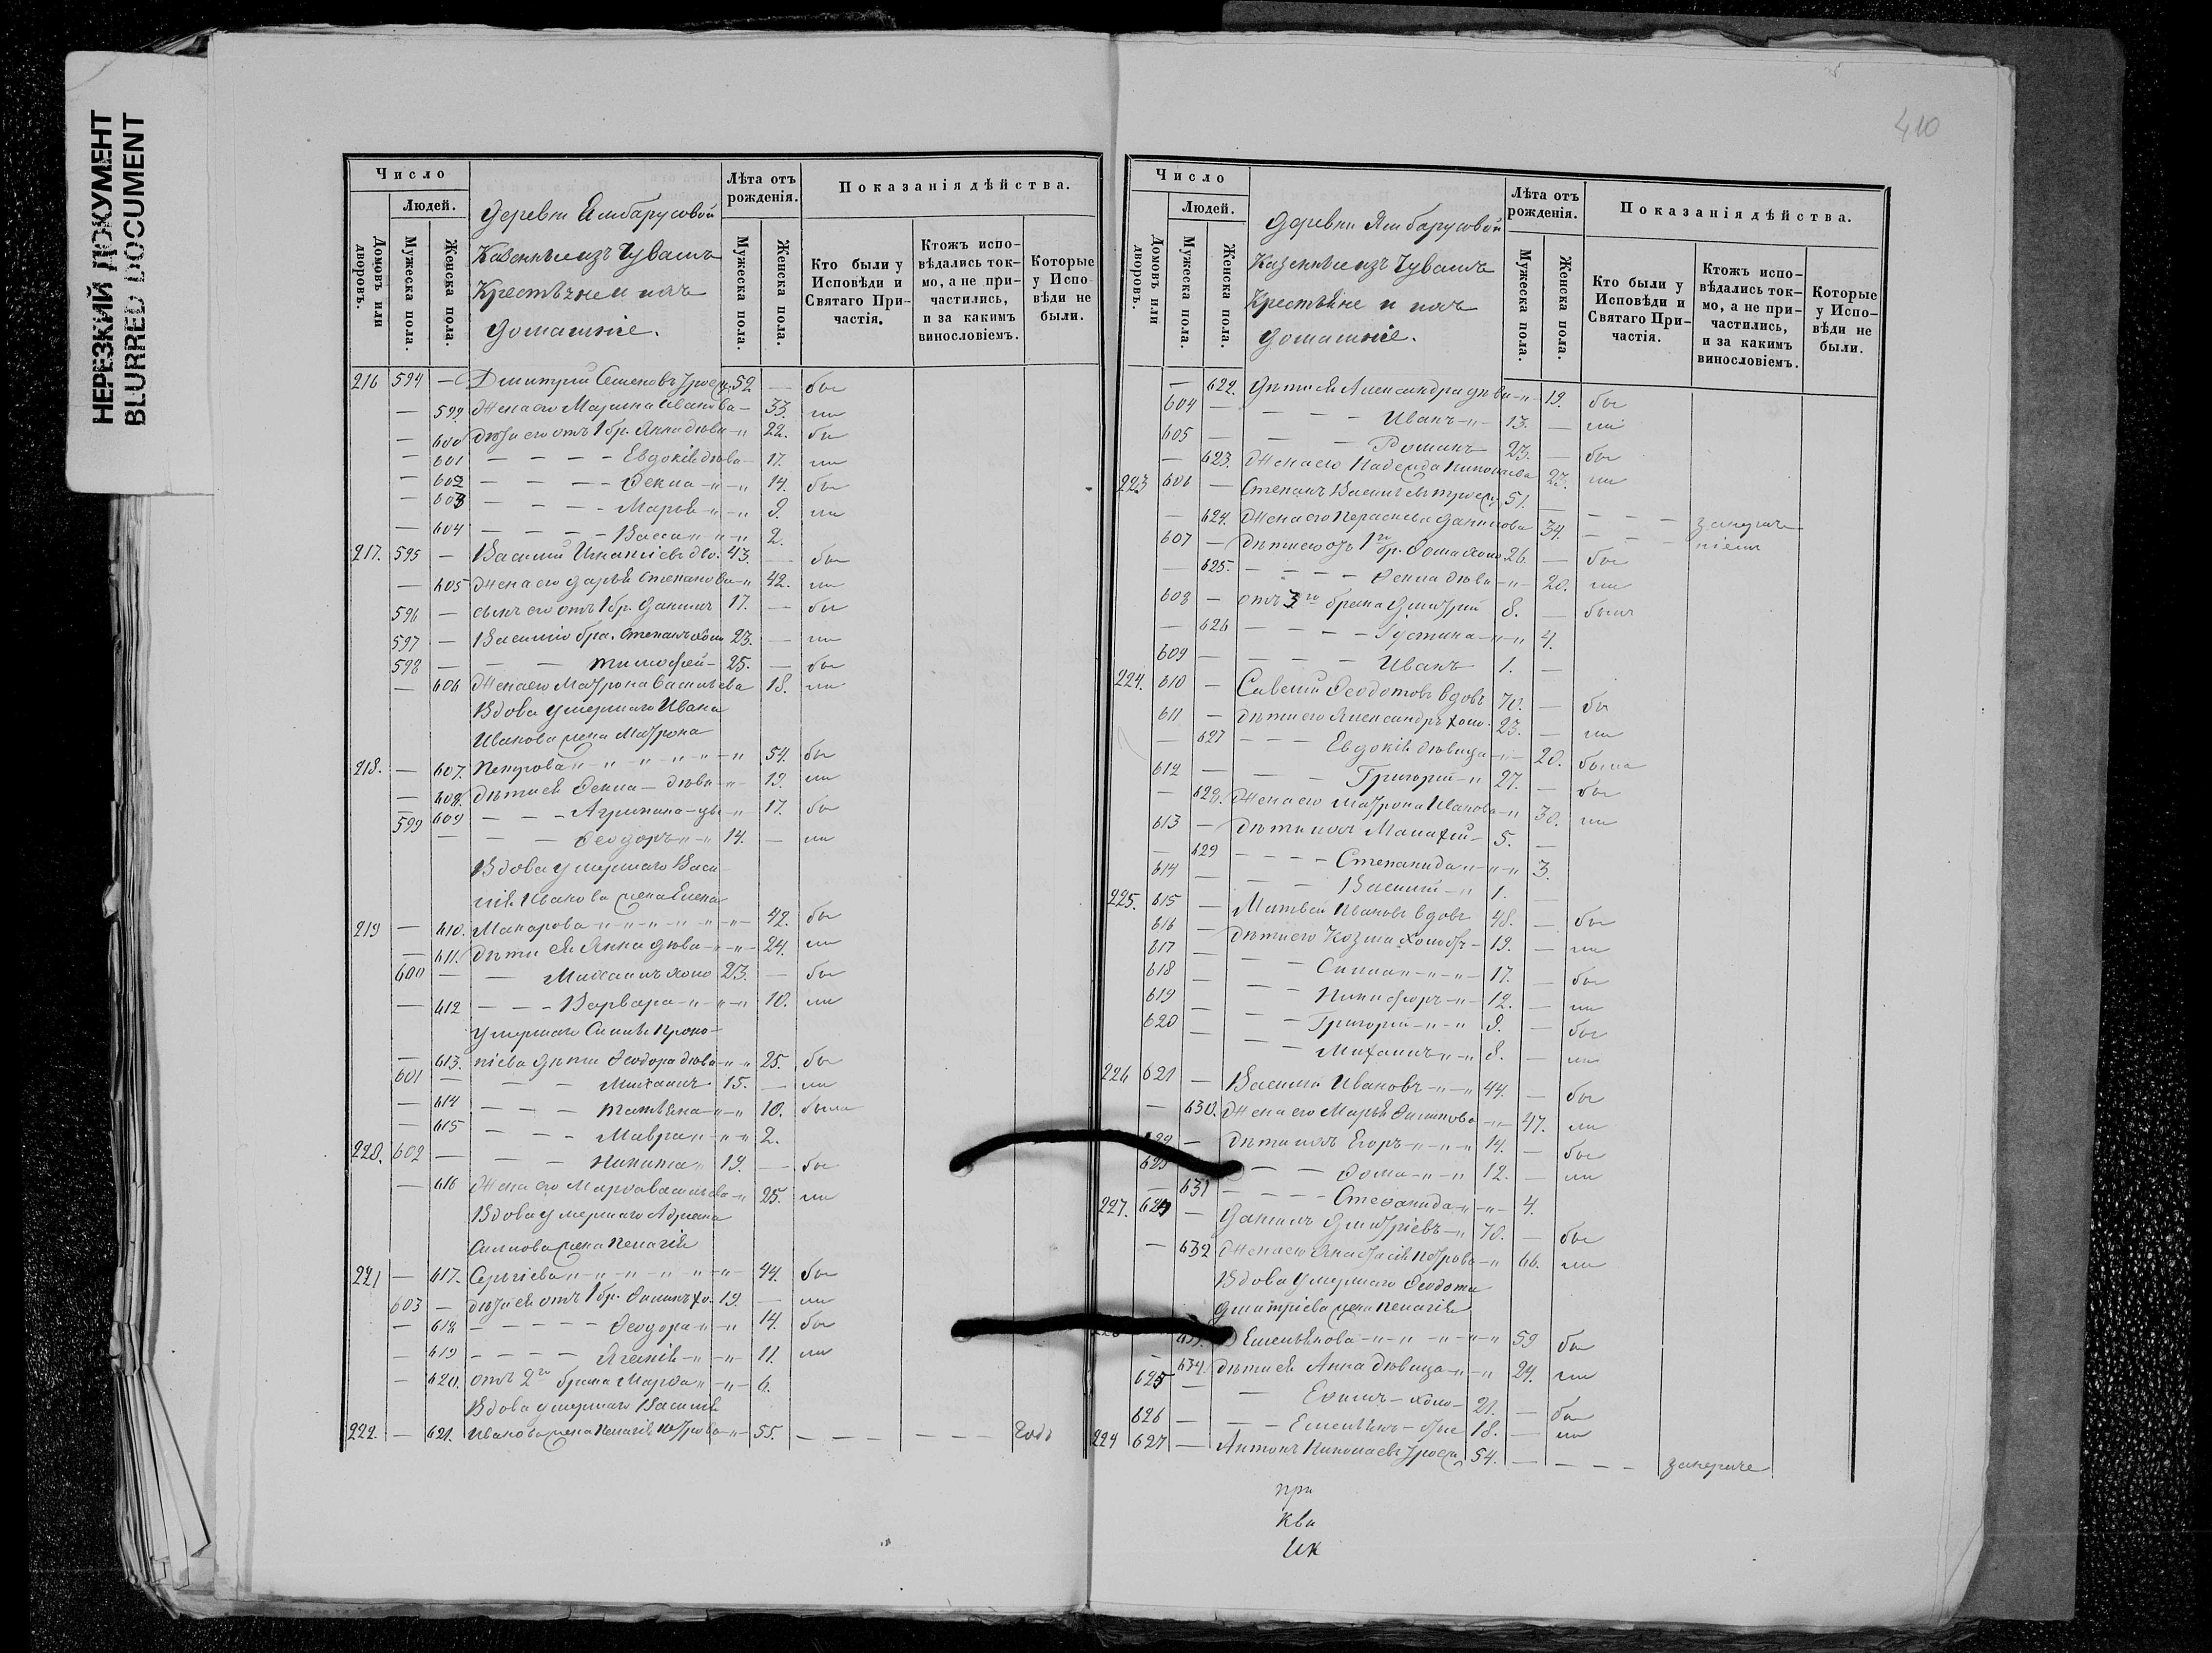 НЕРЕЗКИЙ ДОКУМЕНТ
BLURRED DOCUMENT
Число
Людей.
Домовъ или дворовъ.
Мужеска пола.
Женска пола.
Деревни Ямбарусовой
Казенные изъ Чувашъ
Крестьяне и ихъ
домашніе.
Лѣта отъ рожденія.
Мужеска пола.
Женска пола.
Показанія дѣйства.
Кто были у Исповѣди и Святаго Причастія.
Ктожъ исповѣдались токмо, а не причастились, и за какимъ винословіемъ.
Которые у Исповѣди не были.
216 594 — Дмитрий Семеновъ 52 — бы
— 599 Жена его Марина Иванова — 33. ли
— 600 Дѣти его отъ 1 бр. Анна дѣви — 22. бы
— 601 — — — Евдокія дѣви — 17. ли
— 602 — — — Фекла — 14. бы
— 603 — — — Марья — 9. ли
— 604 — — — Васса — 2.
217. 595 — Василий Игнатіевъ 43. — бы
— 605 Жена его Дарья Степанова — 42. ли
596 — сынъ его отъ 1 бр. Данилъ 17. — бы
597 — Василія бра. Степанъ холо 23. — ли
598 — — — Тимофей — 25. — бы
— 606 Жена его Матрона Васильева 18. ли
Вдова умершаго Ивана
Иванова жена Матрона
218. — 607. Петрова — 54. бы
— 608. дѣти ея Фекла — дѣви — 19. ли
— 609 — — — Агрипина — 17. бы
599 — — — Феодоръ — 14. — ли
Вдова умершаго Васи-
лія Иванова жена Елена
219 — 610. Макарова — 42. бы
— 611. дѣти ея Анна дѣви — 24. ли
600 — — Михаилъ холо 23. — бы
— 612 — — — Варвара — 10. ли
умершаго Силы Проко-
— 613. піева дѣти Феодора дѣви — 25. бы
601 — — — Михаилъ 15. — ли
— 614 — — — Татьяна — 10. была
— 615 — — — Мавра — 2.
220. 602 — — — Никита 19. — бы
— 616 Жена его Марфа Васильева — 25. ли
Вдова умершаго Адриана
жена Пелагія
221 — 617. Сергіева — 44. бы
603 — дѣти ея отъ 1 бр. Филипъ хо. 19. — ли
— 618 — — — Феодора — 14. бы
— 619 — — — — 11. ли
— 620. отъ 2го брака Марфа — 6.
Вдова умершаго Василія
222. — 621. Иванова жена Пелагія Петрова — 55. — — — —
410
Число
Людей.
Домовъ или дворовъ.
Мужеска пола.
Женска пола.
Деревни Ямбарусовой
Казенные изъ Чувашъ
Крестьяне и ихъ
домашніе.
Лѣта отъ рожденія.
Мужеска пола.
Женска пола.
Показанія дѣйства.
Кто были у Исповѣди и Святаго Причастія.
Ктожъ исповѣдались токмо, а не причастились, и за какимъ винословіемъ.
Которые у Исповѣди не были.
— 622. Дѣти ея Александра дѣви — 19. бы
604 — — — Иванъ — 13. — ли
605 — — — Романъ 23. — бы
— 623. Жена его Надежда Николаева 23. ли
223 606 — Степанъ Васильевъ 51. — — —
— 624. Жена его Параскева Данилова 34. — —
607 — Дѣти его отъ 1го бр. Фома холо 26. — бы
— 625. — — — Фекла дѣви — 20. ли
608 — отъ 3го брака Димитрій 8. — былъ
— 626 — — — Густина — 4.
609 — — — Иванъ 1. —
224. 610 — Савелій Феодотовъ вдовъ 70. — бы
611 — Дѣти его Александръ холо. 23. — ли
— 627 — — — Евдокія дѣвица — 20. была
612 — — — Григорій — 27. — бы
— 628. Жена его Матрона Иванова — 30. ли
613 — Дѣти ихъ — 5. —
— 629 — — — Степанида — 3.
614 — — — Василій — 1. —
225. 615 — Матвей Ивановъ вдовъ 48. — бы
616 — Дѣти его Козма — 19. — ли
617 — — — — 17. — бы
618 — — — Никифоръ — 12. — ли
619 — — — Григорій — 9. — бы
620 — — — Михаилъ — 8. — ли
226 621 — Василій Ивановъ — 44. — бы
— 630. Жена его Марья Филипова — 47. ли
— Дѣти ихъ Егоръ — 14. — бы
— — Фома — 12. — ли
— 631 — — — Степанида — 4.
227. 624 — Данилъ Дмитріевъ — 70. — бы
— 632 Жена его Анастасія Петрова — 66. ли
Вдова умершаго Феодота
Дмитріева жена Пелагія
Емельянова — 59 бы
— 634. Дѣти ея Анна дѣвица — 24. ли
625 — — — холо — 21. — бы
626 — — — Емельянъ — 18. — ли
229 627 — Антонъ Николаевъ 54. — — — —
при
ква
ик